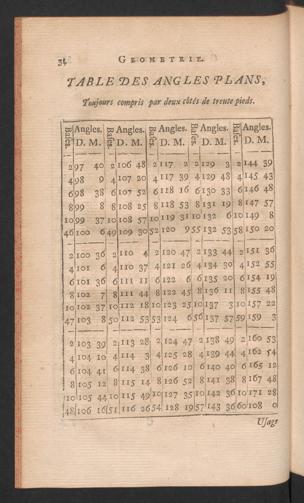 34 GEOMETRIE.
TABLE DES ANGLES PLANS,
Toujours compris par deux côtés de trente pieds.
Bases. Angles. Bases. Angles. Bases. Angles. Bases. Angles. Bases. Angles.
D. M. D. M. D. M. D. M. D. M.
2 97 40 2 106 48 2 117 2 2 129 3 2 144 39
4 98 9 4 107 20 4 117 39 4 129 48 4 145 43
6 98 38 6 107 52 6 118 16 6 130 33 6 146 48
8 99 8 8 108 25 8 118 53 8 131 19 8 147 57
10 99 37 10 108 57 10 119 31 10 132 6 10 149 8
46 100 6 49 109 30 52 120 9 55 132 53 58 150 20
2 100 36 2 110 4 2 120 47 2 133 44 2 151 36
4 101 6 4 110 37 4 121 26 4 134 30 4 152 55
6 101 36 6 111 11 6 122 6 6 135 20 6 154 19
8 102 7 8 111 44 8 122 45 8 136 11 8 155 48
10 102 37 10 112 18 10 123 25 10 137 3 10 157 22
47 103 8 50 112 53 53 124 6 56 137 57 59 159 3
2 103 39 2 113 28 2 124 47 2 138 49 2 160 53
4 104 10 4 114 3 4 125 28 4 139 44 4 162 54
6 104 41 6 114 38 6 126 10 6 140 40 6 165 12
8 105 12 8 115 14 8 126 52 8 141 38 8 167 48
10 105 44 10 115 49 10 127 35 10 142 36 10 171 28
48 106 16 51 116 26 54 128 19 57 143 36 60 108 0
Usage